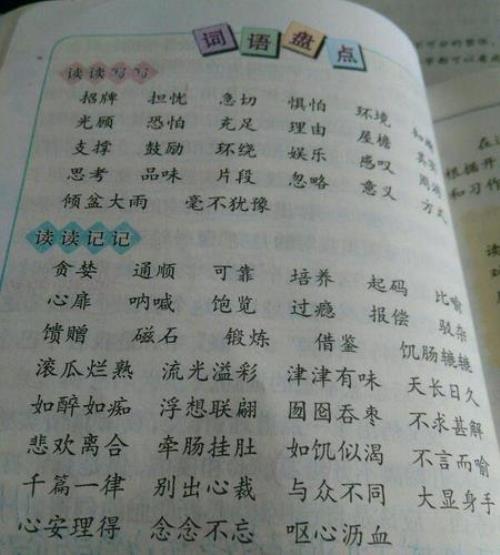 词语盘点
读读写写
招牌 担忧 急切 惧怕 环境
光顾 恐怕 充足 理由 屋檐
支撑 鼓励 环绕 娱乐 感叹
思考 品味 片段 忽略 意义 方式
倾盆大雨 毫不犹豫
读读记记
贪婪 通顺 可靠 培养 起码 比喻
心扉 呐喊 饱览 过瘾 报偿 驳杂
馈赠 磁石 锻炼 借鉴 饥肠辘辘
滚瓜烂熟 流光溢彩 津津有味 天长日久
如醉如痴 浮想联翩 囫囵吞枣 不求甚解
悲欢离合 牵肠挂肚 如饥似渴 不言而喻
千篇一律 别出心裁 与众不同 大显身手
心安理得 念念不忘 呕心沥血
在
根据开
和习作
读